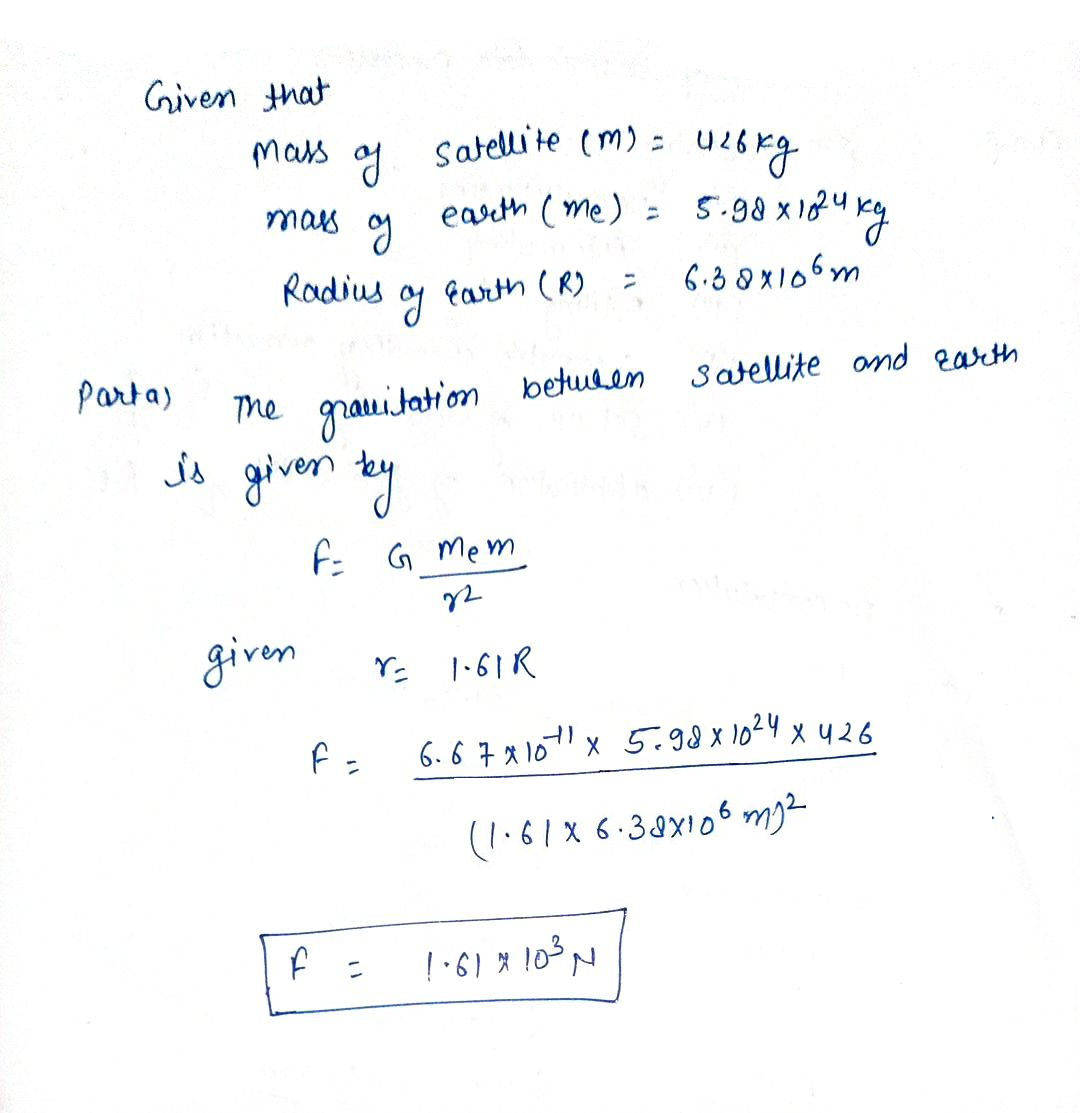 Given that
Mass of satellite (m) = 426 kg
mass of earth (me) = 5.98 x 10²⁴ kg
Radius of Earth (R) = 6.38x10⁶ m
Part a) The gravitation between satellite and earth
is given by
F = G Mem
r²
given r = 1.61 R
F = 6.67 x 10⁻¹¹ x 5.98 x 10²⁴ x 426
(1.61 x 6.38x10⁶ m)²
F = 1.61 x 10³ N